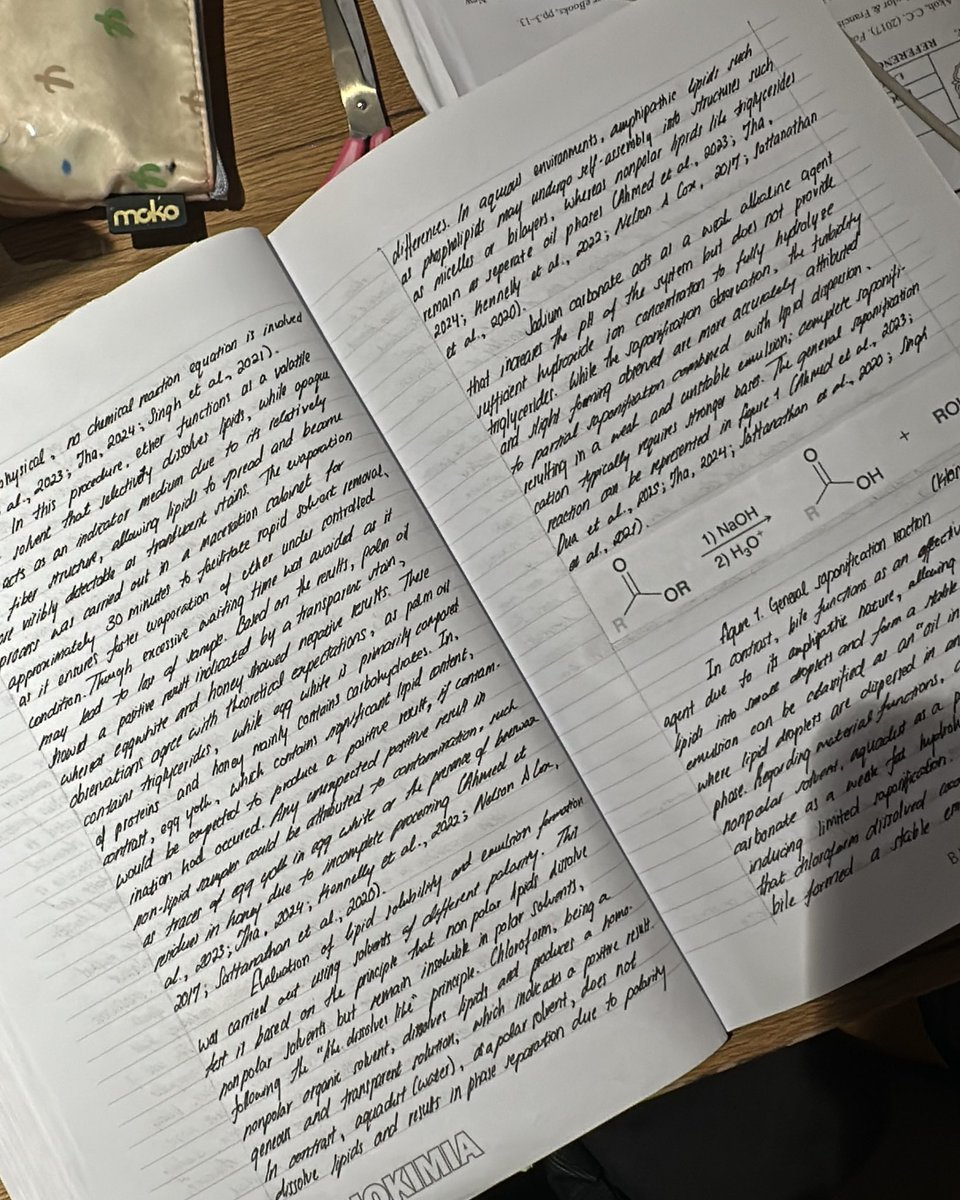 moko
physical, no chemical reaction equation is involved
al., 2023; Jha, 2024; Singh et al., 2021).
In this procedure, ether functions as a volatile
solvent that selectively dissolves lipids, while opaque
acts as an indicator medium due to its relatively
fiber structure, allowing lipids to spread and become
more visibly detectable as translucent stains. The evaporation
process was carried out in a maceration cabinet for
approximately 30 minutes to facilitate rapid solvent removal,
as it ensures faster evaporation of ether under controlled
condition. Though excessive waiting time was avoided as it
may lead to loss of sample. Based on the results, palm oil
showed a positive result indicated by a transparent stain,
whereas eggwhite and honey showed negative results. These
observations agree with theoretical expectations, as palm oil
contains triglycerides, while egg white is primarily composed
of proteins and honey mainly contains carbohydrates. In,
contrast, egg yolk, which contains significant lipid content,
would be expected to produce a positive result, if contam-
ination had occured. Any unexpected positive result in
non-lipid samples could be attributed to contamination, such
as traces of egg yolk in egg white or the presence of beeswax
residues in honey due to incomplete processing (Ahmed et
al., 2023; Jha, 2024; Kennelly et al., 2022; Nelson & Cox,
2017; Sattanathan et al., 2020).
Evaluation of lipid solubility and emulsion formation
was carried out using solvents of different polarity. This
test is based on the principle that non polar lipids dissolve
nonpolar solvents but remain insoluble in polar solvents,
following the "like dissolves like" principle. Chloroform, being a
nonpolar organic solvent, dissolves lipids and produces a homo-
geneous and transparent solution, which indicates a positive result.
In contrast, aquadest (water), a polar solvent, does not
dissolve lipids and results in phase separation due to polarity
OKIMIA
differences. In aqueous environments, amphipathic lipids such
as phospholipids may undergo self-assembly into structures such
as micelles or bilayers, whereas nonpolar lipids like triglycerides
remain as seperate oil phases (Ahmed et al., 2023; Jha,
2024; Kennelly et al., 2022; Nelson & Cox, 2017; Sattanathan
et al., 2020).
Sodium carbonate acts as a weak alkaline agent
that increases the pH of the system but does not provide
sufficient hydroxide ion concentration to fully hydrolyze
triglycerides. While the saponification observation, the turbidity
and slight foaming observed are more accurately attributed
to partial saponification combined with lipid dispersion,
resulting in a weak and unstable emulsion; complete saponifi-
cation typically requires stronger bases. The general saponification
reaction can be represented in figure 1 (Ahmed et al., 2023;
Dua et al., 2025; Jha, 2024; Sattanathan et al., 2020; Singh
et al., 2021).
O
R
OR
1) NaOH
2) H3O+
O
R
OH
+
ROH
Figure 1. General saponification reaction
In contrast, bile functions as an effective
agent due to its amphipathic nature, allowing
lipids into small droplets and form a stable
emulsion can be classified as an "oil in
where lipid droplets are dispersed in an
phase. Regarding material functions,
nonpolar solvent, aquadest as a p
carbonate as a weak fat hydrol
inducing limited saponification.
that chloroform dissolved
bile formed a stable em
eBooks, pp.3-13
C.C. (2017). Fo
lor & Francis
REFERENC